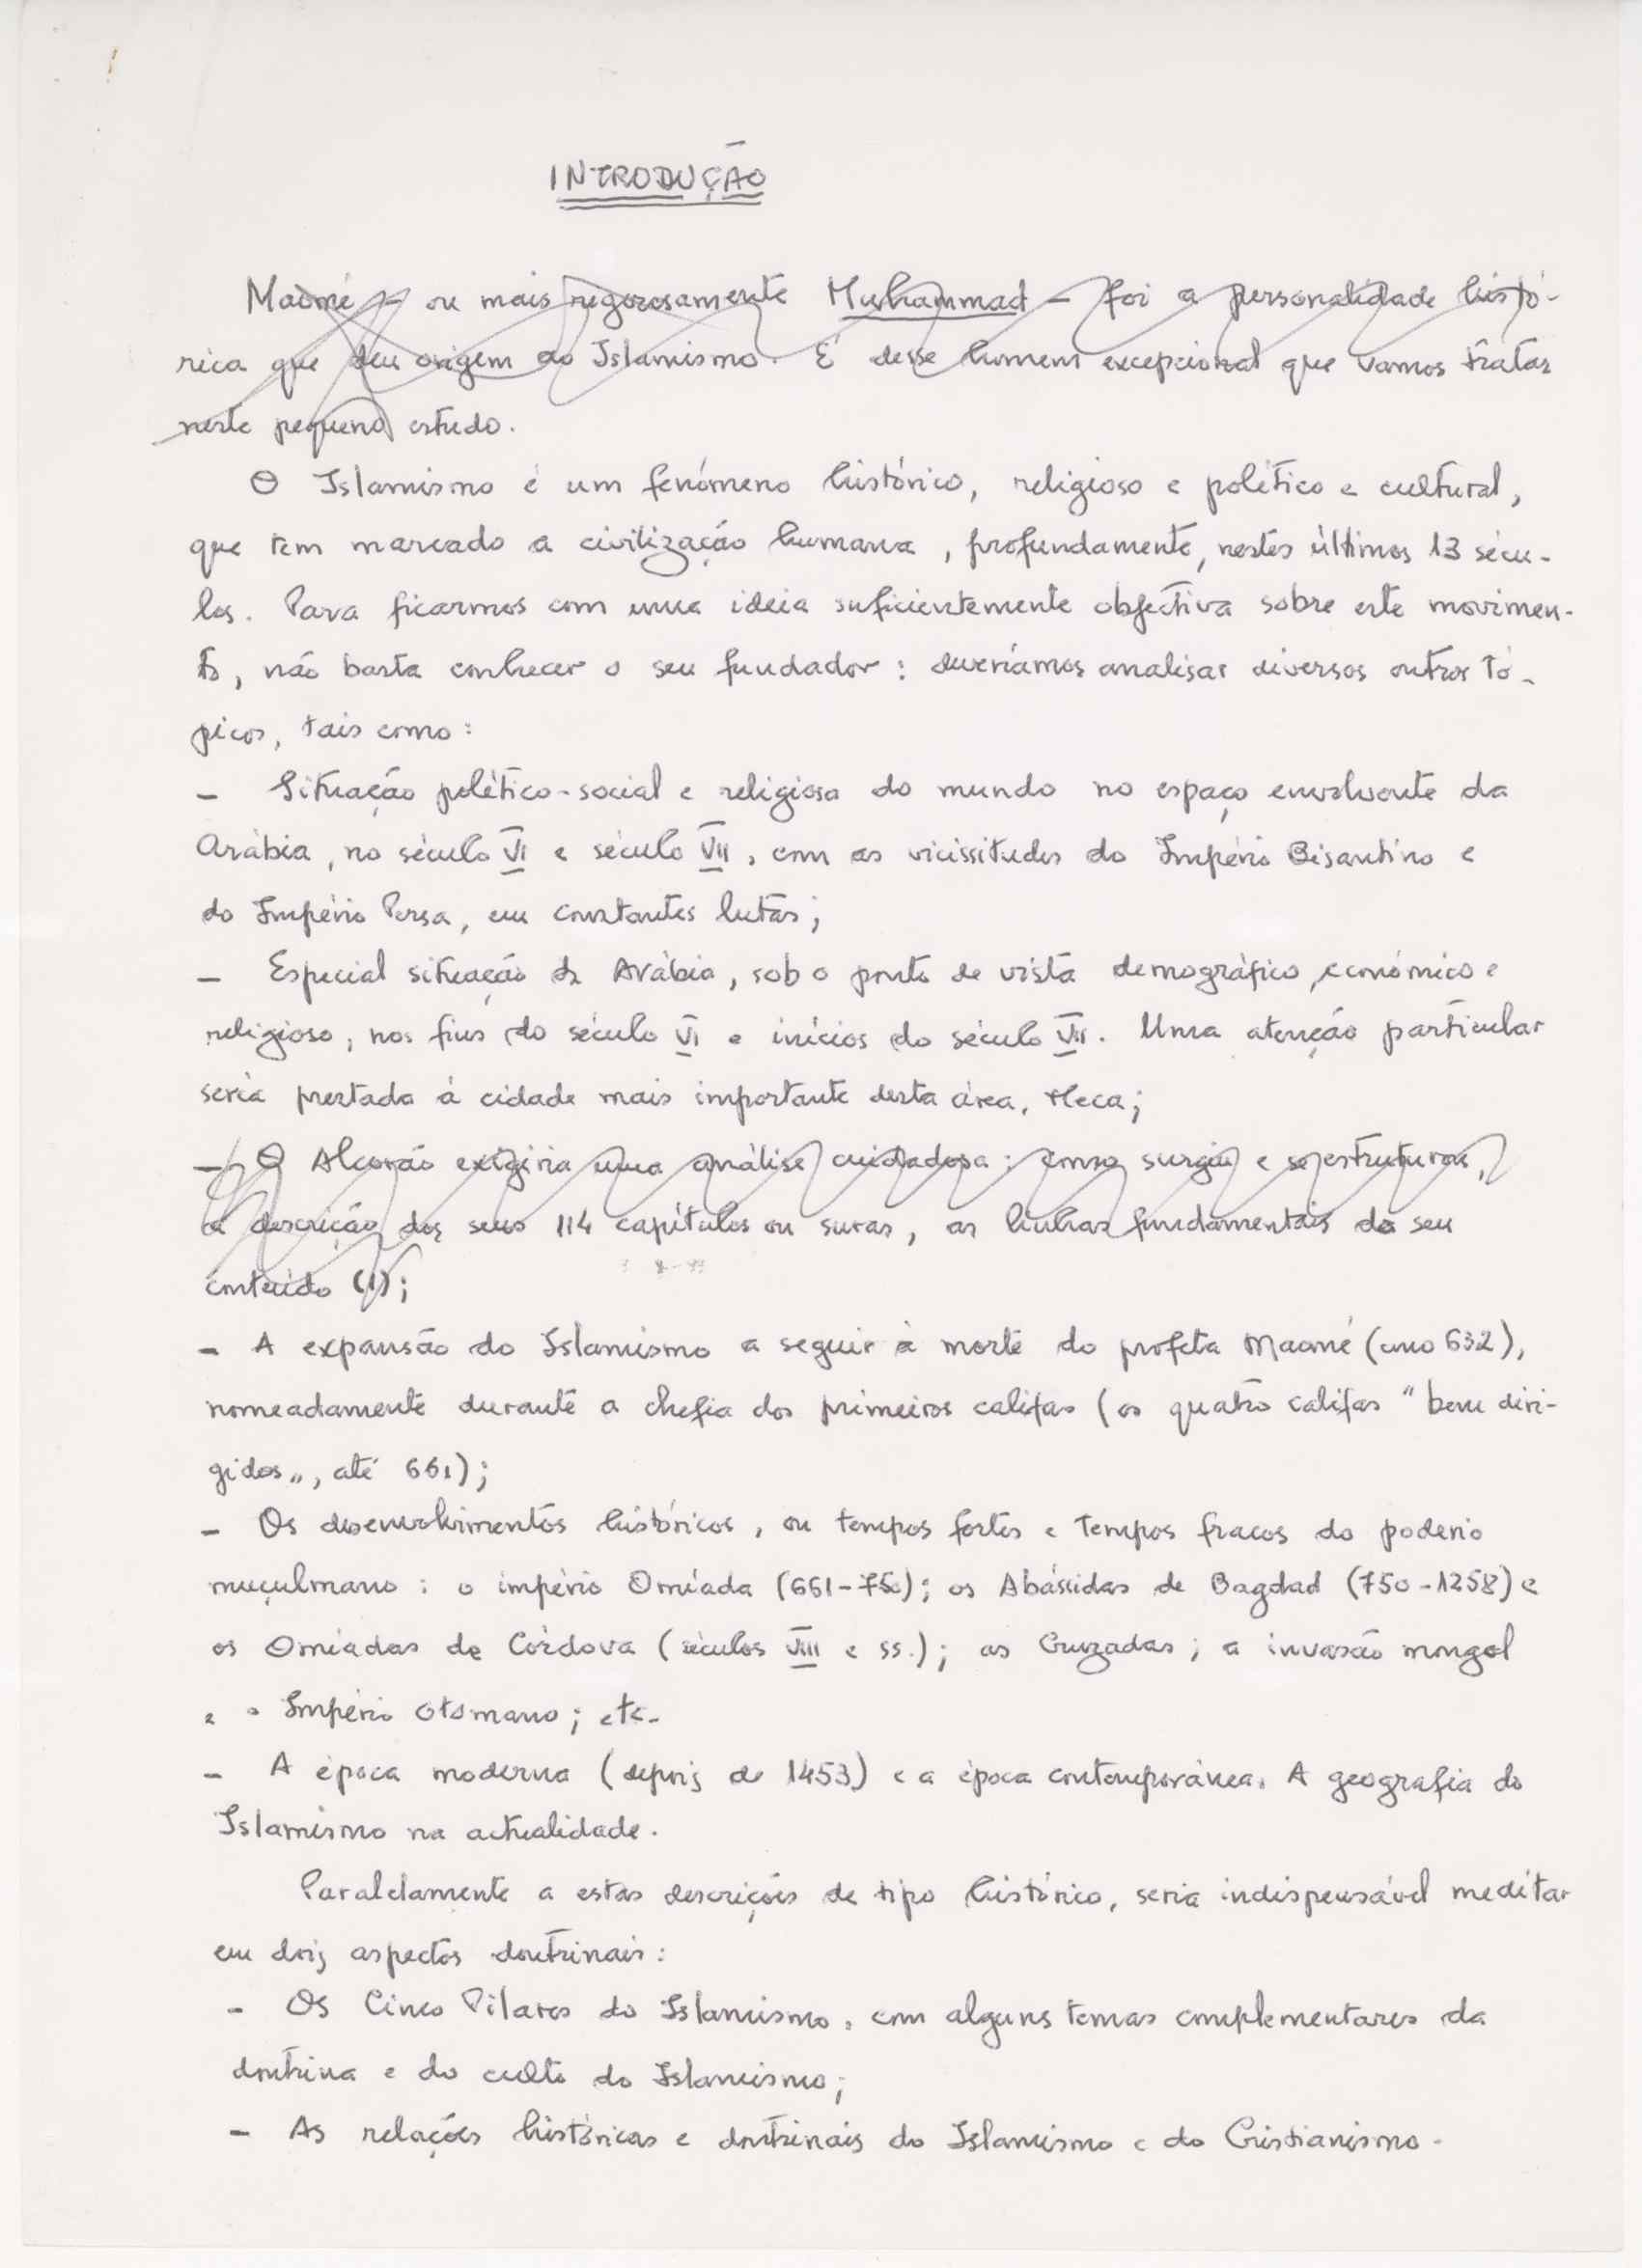 INTRODUÇÃO
Maomé - ou mais rigorosamente Muhammad - foi a personalidade histó-
rica que deu origem ao Islamismo. É desse homem excepcional que vamos tratar
neste pequeno estudo.
O Islamismo é um fenómeno histórico, religioso e político e cultural,
que tem marcado a civilização humana, profundamente, nestes últimos 13 sécu-
los. Para ficarmos com uma ideia suficientemente objectiva sobre este movimen-
to, não basta conhecer o seu fundador: deveríamos analisar diversos outros tó-
picos, tais como:
- Situação político-social e religiosa do mundo no espaço envolvente da
Arábia, no século VI e século VII, com as vicissitudes do Império Bisantino e
do Império Persa, em constantes lutas;
- Especial situação da Arábia, sob o ponto de vista demográfico, económico e
religioso, nos fins do século VI e inícios do século VII. Uma atenção particular
seria prestada à cidade mais importante desta área, Meca;
- O Alcorão exigiria uma análise cuidadosa: como surgiu e se estruturou,
a descrição dos seus 114 capítulos ou suras, as linhas fundamentais do seu
conteúdo (1);
- A expansão do Islamismo a seguir à morte do profeta Maomé (ano 632),
nomeadamente durante a chefia dos primeiros califas (os quatro califas "bem diri-
gidos", até 661);
- Os desenvolvimentos históricos, ou tempos fortes e tempos fracos do poderio
muçulmano: o império Omíada (661-750); os Abássidas de Bagdad (750-1258) e
os Omíadas de Córdova (séculos VIII e ss.); as Cruzadas; a invasão mongol
e o Império Otomano; etc.
- A época moderna (depois de 1453) e a época contemporânea. A geografia do
Islamismo na actualidade.
Paralelamente a estas descrições de tipo histórico, seria indispensável meditar
em dois aspectos doutrinais:
- Os Cinco Pilares do Islamismo, com alguns temas complementares da
doutrina e do culto do Islamismo;
- As relações históricas e doutrinais do Islamismo e do Cristianismo.